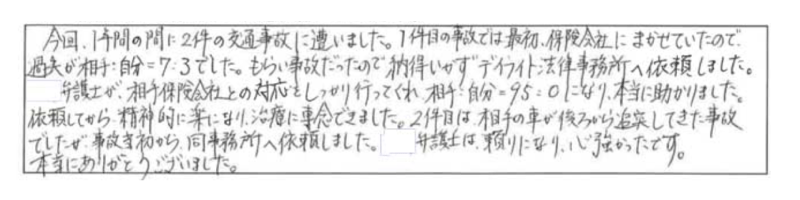 今回、1年間の間に2件の交通事故に遭いました。1件目の事故では最初、保険会社にまかせていたので、
過失が相手:自分=7:3でした。もらい事故だったので納得いかずデイライト法律事務所へ依頼しました。
弁護士が、相手保険会社との対応をしっかり行ってくれ、相手:自分=95:0になり、本当に助かりました。
依頼してから、精神的に楽になり、治療に専念できました。2件目は、相手の車が後ろから追突してきた事故
でしたが、事故当初から、同事務所へ依頼しました。弁護士は、頼りになり、心強かったです。
本当にありがとうございました。